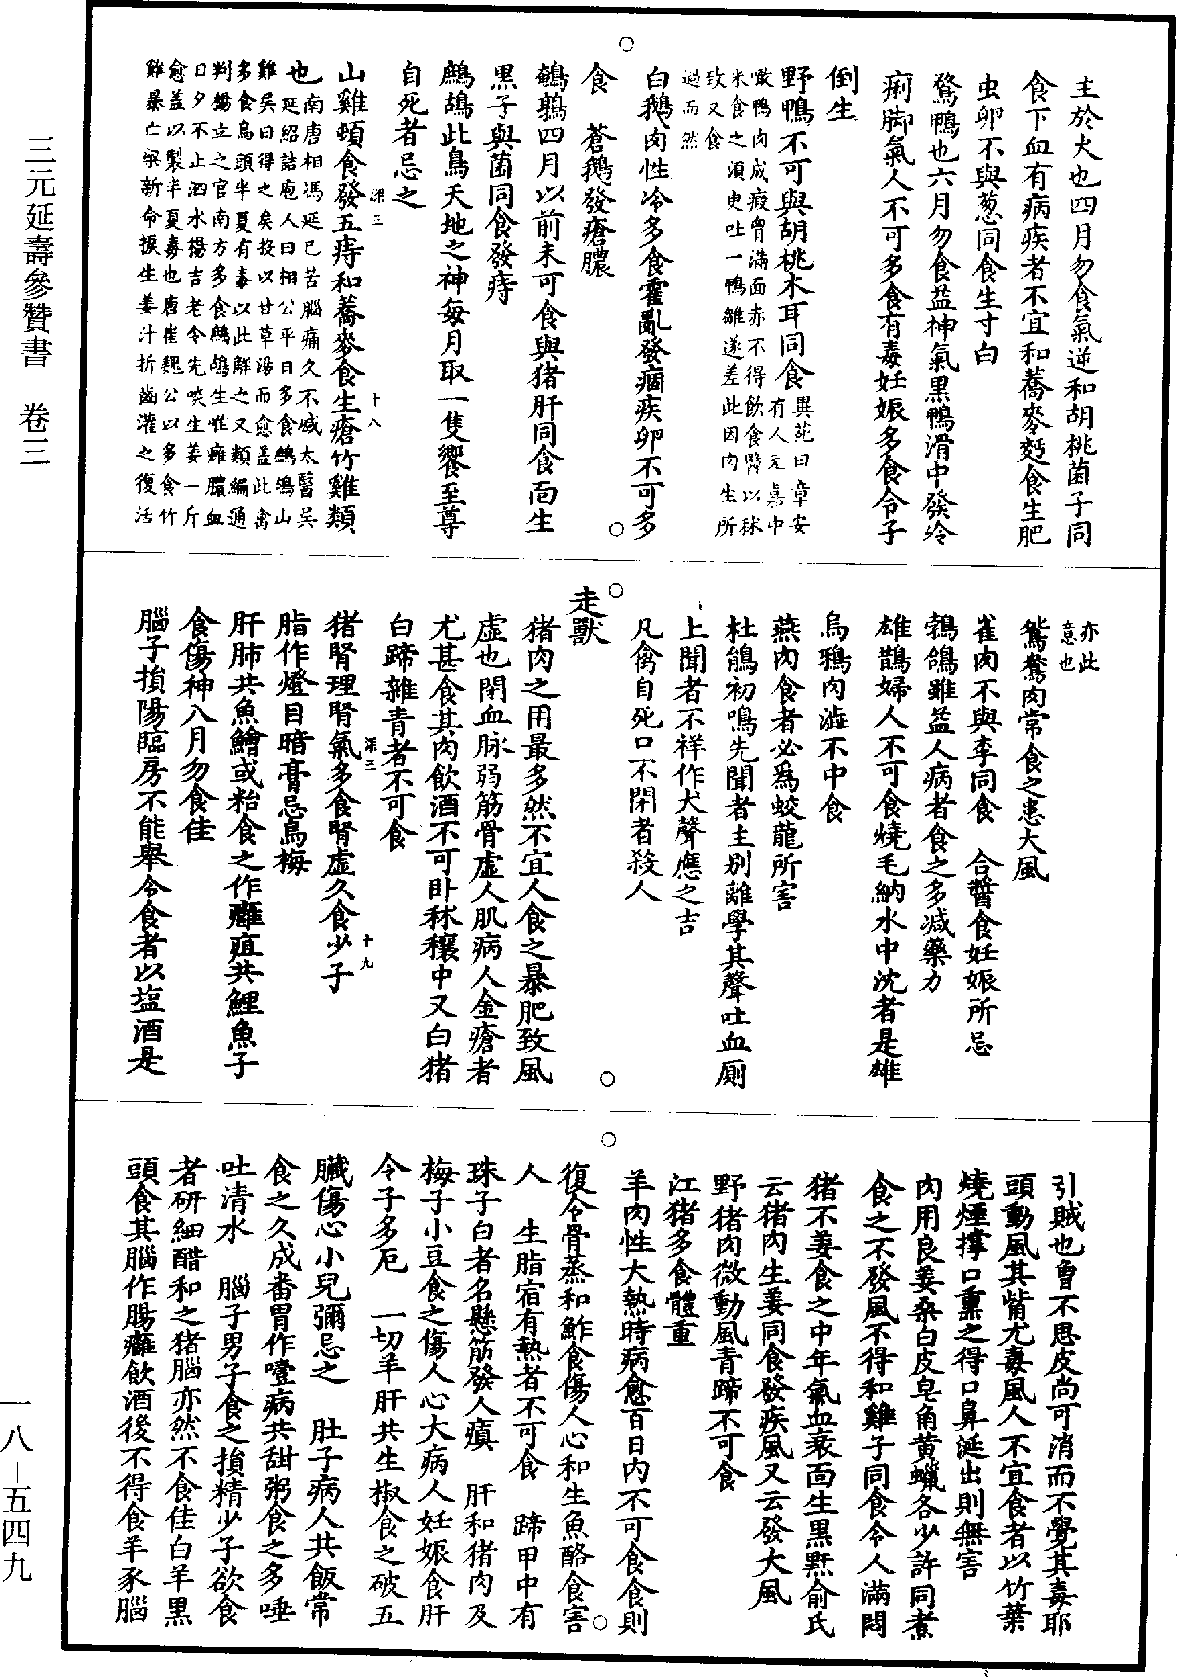 三元延壽參贊書　卷三
主於火也四月勿食氣逆和胡桃菌子同
食下血有病疾者不宜和蕎麥麪食生肥
虫卵不與葱同食生寸白
鶩鴨也六月勿食益神氣黑鴨滑中發冷
痢脚氣人不可多食有毒妊娠多食令子
倒生
野鴨不可與胡桃木耳同食異苑曰章安有人元嘉中
噉鴨肉成瘕胷滿面赤不得飲食醫以秫
米食之須臾吐一鴨雛遂差此因肉生所
致又食
過而然
白鵝肉性冷多食霍亂發痼疾卵不可多
食　蒼鵝發瘡膿
鵪鶉四月以前未可食與猪肝同食面生
黑子與菌同食發痔
鷓鴣此鳥天地之神每月取一隻饗至尊
自死者忌之
深三　十八
山雞頻食發五痔和蕎麥食生瘡竹雞類
也南唐相馮延巳苦腦痛久不減太醫吳
延紹詰庖人曰相公平日多食鷓鴣山
雞吳曰得之矣投以甘草湯而愈蓋此禽
多食烏頭半夏有毒以此解之又類編通
判楊立之官南方多食鷓鴣生喉癰膿血
日夕不止泗水楊吉老令先啖生姜一斤
愈蓋以製半夏毒也唐崔魏公以多食竹
雞暴亡梁新命捩生姜汁折齒灌之復活
亦此
意也
鴛鴦肉常食之患大風
雀肉不與李同食　合醬食妊娠所忌
鵓鴿雖益人病者食之多減藥力
雄鵲婦人不可食燒毛納水中沈者是雄
烏鴉肉澁不中食
燕肉食者必爲蛟龍所害
杜鵑初鳴先聞者主别離學其聲吐血厠
上聞者不祥作犬聲應之吉
凡禽自死口不閉者殺人
走獸
猪肉之用最多然不宜人食之暴肥致風
虛也閉血脉弱筋骨虛人肌病人金瘡者
尤甚食其肉飲酒不可卧秫穰中又白猪
白蹄雜青者不可食
深三　十九
猪腎理腎氣多食腎虛久食少子
脂作燈目暗膏忌烏梅
肝肺共魚鱠或粉食之作癰疽共鯉魚子
食傷神八月勿食佳
腦子損陽臨房不能舉令食者以塩酒是
引賊也曾不思皮尚可消而不覺其毒耶
頭動風其觜尤毒風人不宜食者以竹葉
燒煙撑口熏之得口鼻涎出則無害
肉用良姜桑白皮皂角黄蠟各少許同煮
食之不發風不得和雞子同食令人滿悶
猪不姜食之中年氣血衰面生黑䵟俞氏
云猪肉生姜同食發疾風又云發大風
野猪肉微動風青蹄不可食
江猪多食體重
羊肉性大熱時病愈百日内不可食食則
復令骨蒸和鮓食傷人心和生魚酪食害
人　生脂宿有熱者不可食　蹄甲中有
珠子白者名懸筋發人瘨　肝和猪肉及
梅子小豆食之傷人心大病人妊娠食肝
令子多厄　一切羊肝共生椒食之破五
臟傷心小兒彌忌之　肚子病人共飯常
食之久成番胃作噎病共甜粥食之多唾
吐清水　腦子男子食之損精少子欲食
者研細醋和之猪腦亦然不食佳白羊黑
頭食其腦作腸癰飲酒後不得食羊豕腦
一八－五四九